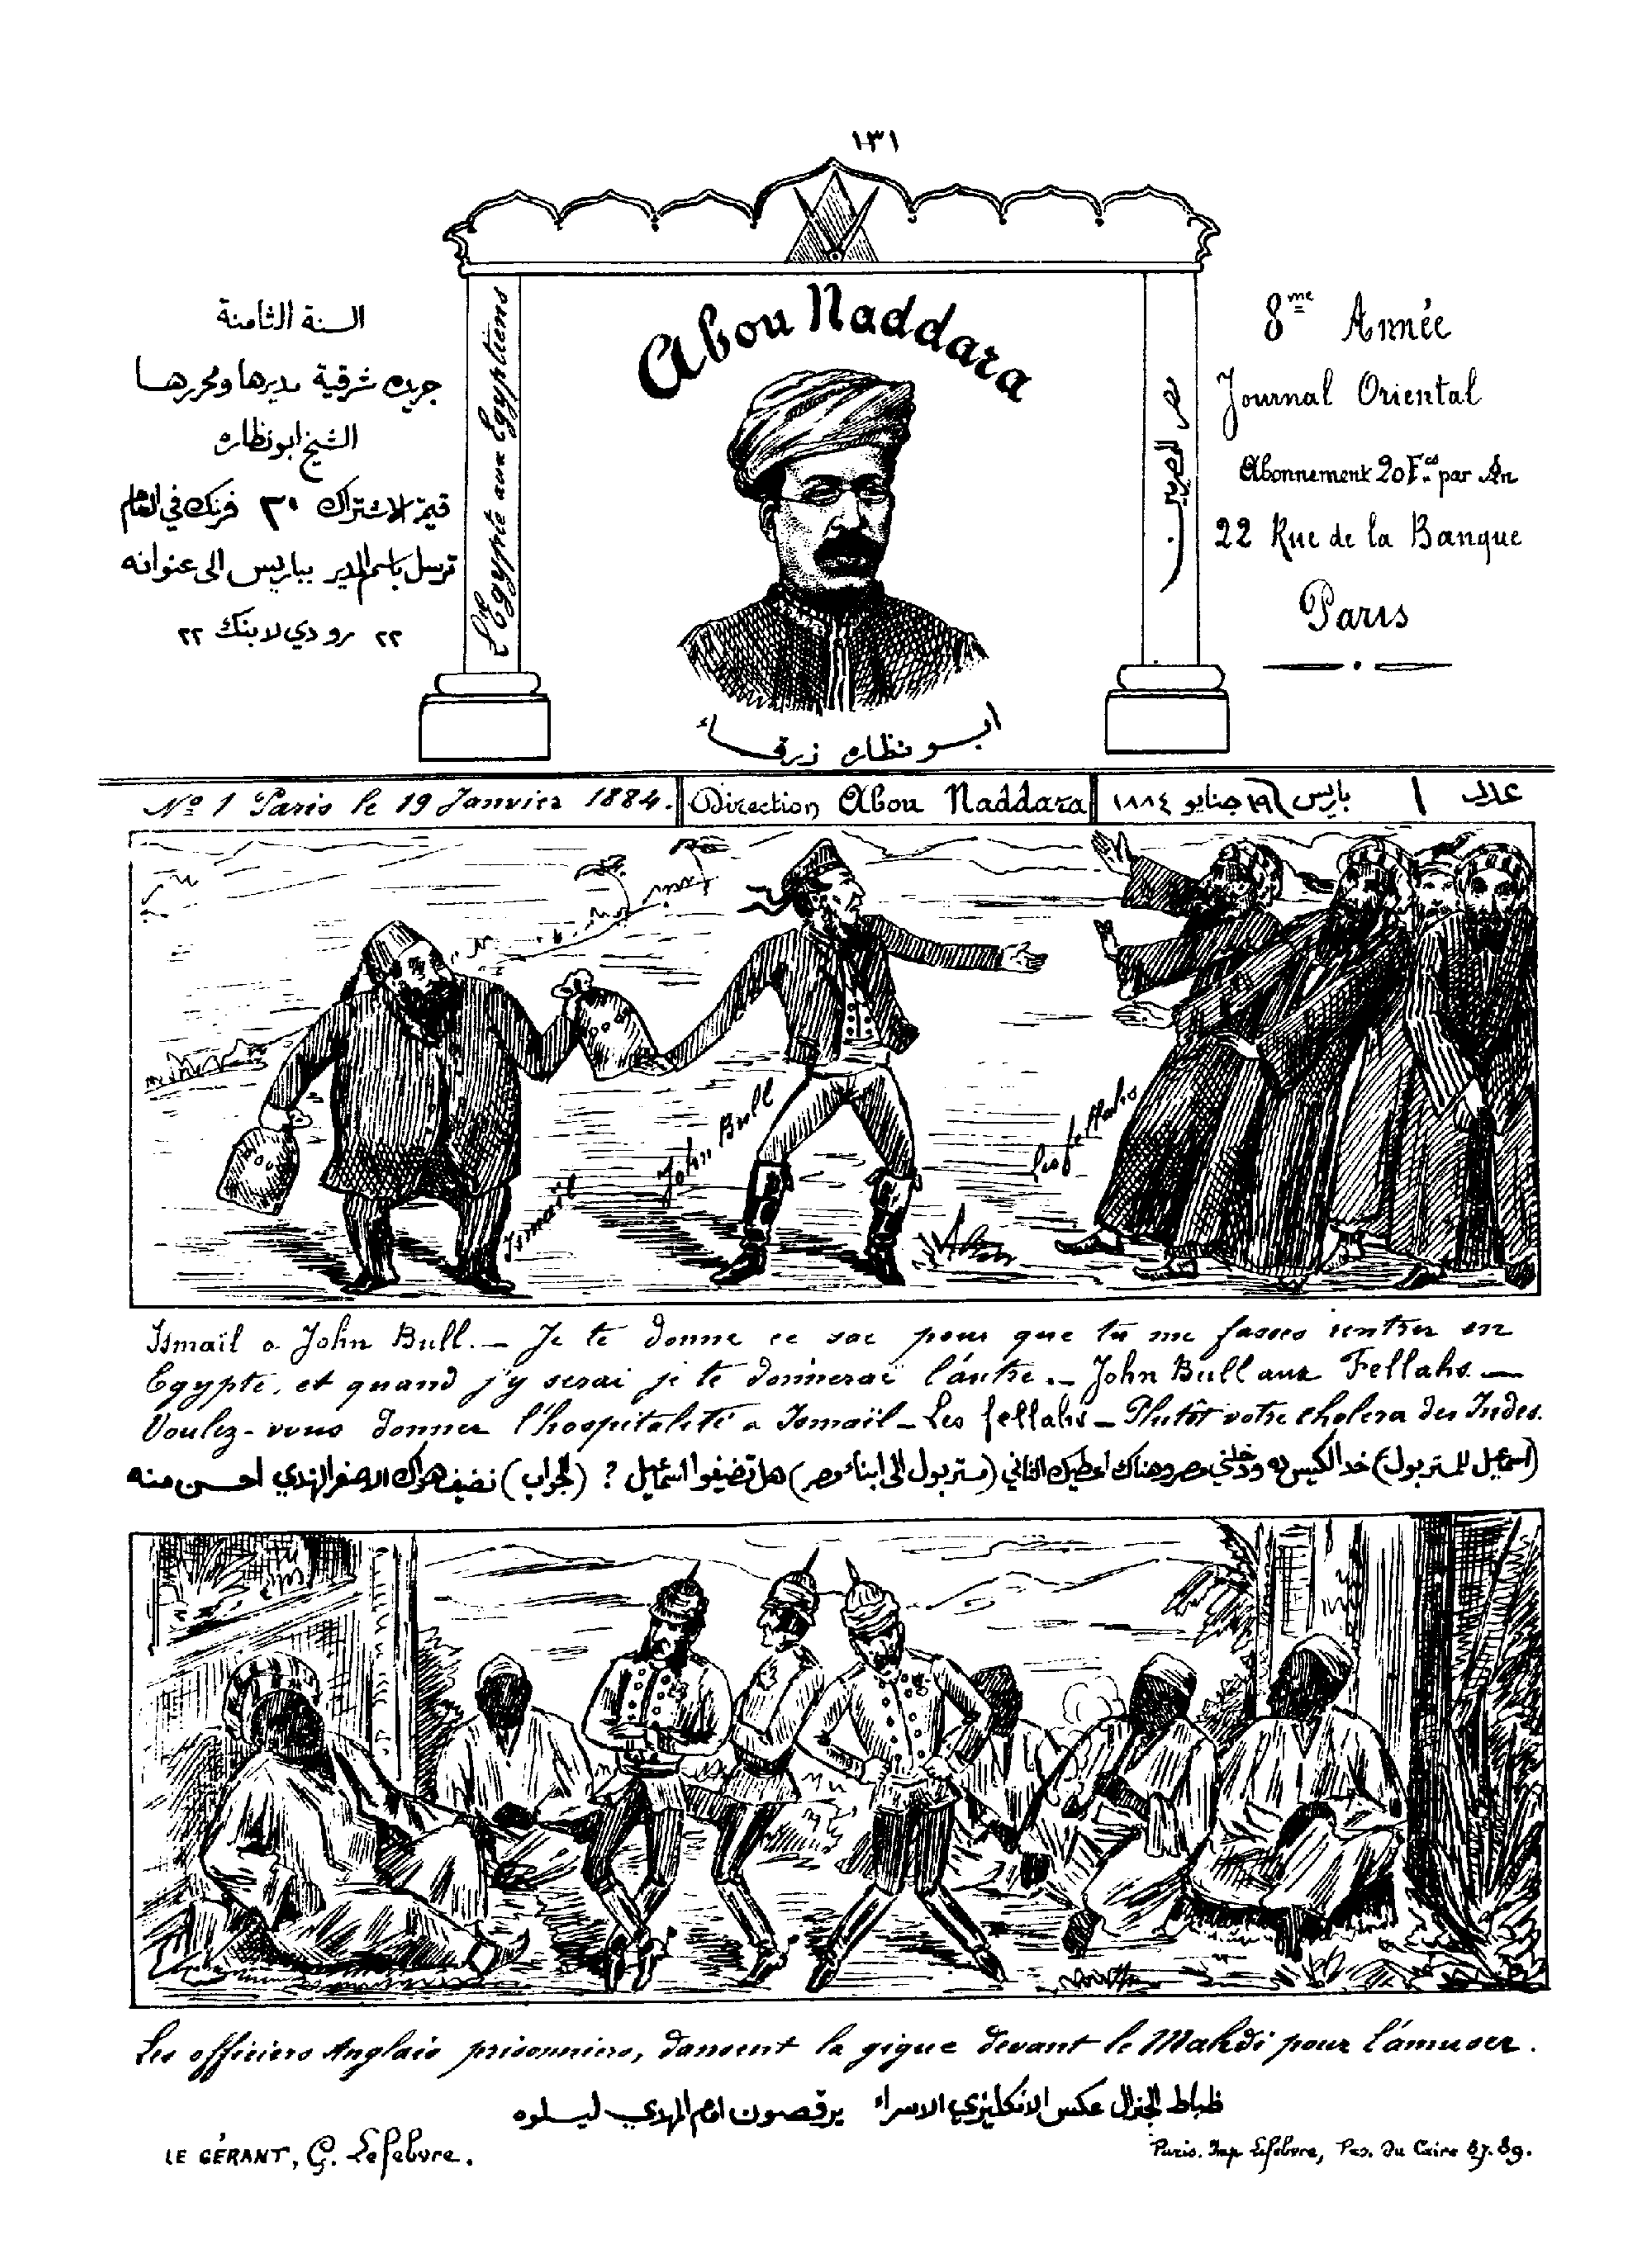 ١٣١
Abou Naddara
L'Egypte aux Egyptiens
مصر للمصريين
السنة الثامنة
جريده شرقية مديرها ومحررها
الشيخ ابو نظاره
قيمة الاشتراك ٢٠ فرنك في العام
ترسل باسم المدير بباريس الى عنوانه
٢٢ رو دي لا بنك ٢٢
8me Année
Journal Oriental
Abonnement 20 Fcs par An
22 Rue de la Banque
Paris
ابو نظاره زرقاء
No 1 Paris le 19 Janvier 1884. Direction Abou Naddara عدد ١ باريس ١٩ جنايو ١٨٨٤
Ismaïl
John Bull
Les fellahs
Ismaïl a John Bull. — Je te donne ce sac pour que tu me fasses rentrer en
Egypte, et quand j'y serai je te donnerai l'autre. — John Bull aux Fellahs. —
Voulez-vous donner l'hospitalité a Ismaïl — Les fellahs — Plutôt votre cholera des Indes.
(اسمعيل للمستر بول) خد الكيس ده ودخلني مصر وهناك اعطيك الثاني (مستر بول الى ابناء مصر) هل تضيفوا اسمعيل ؟ (الجواب) نضيف هواك الاصفر الهندي احسن منه
Les officiers Anglais prisonniers, dansent la gigue devant le Mahdi pour l'amuser.
ظباط الجنرال عكس الانكليزي الاسراء يرقصون امام المهدي ليسلوه
LE GÉRANT, G. Lefebvre.
Paris. Imp Lefebvre, Pas. du Caire 87.89.